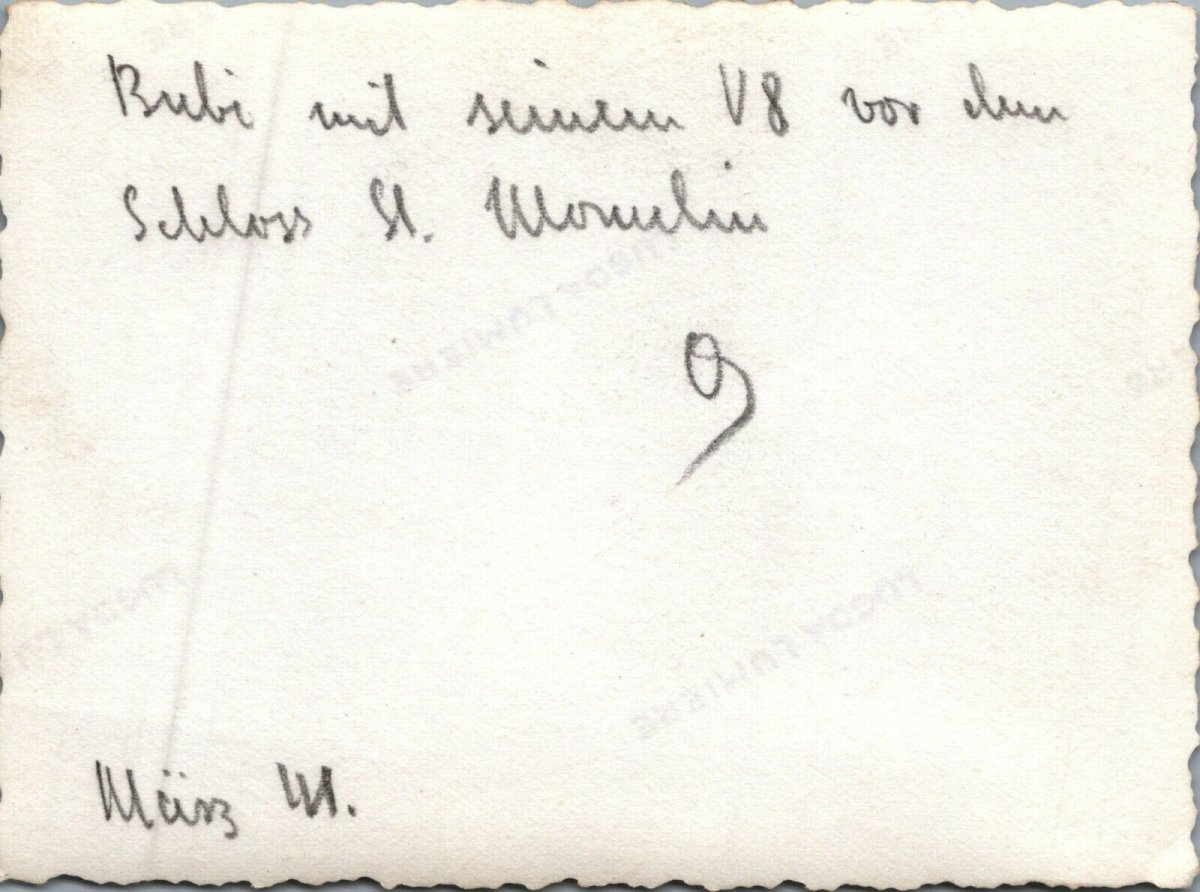 Bubi mit seinem V8 vor dem
Schloss St. Momelin
9
März 41.